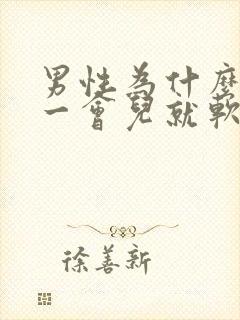 男性為什麼
一會兒就軟
徐善新